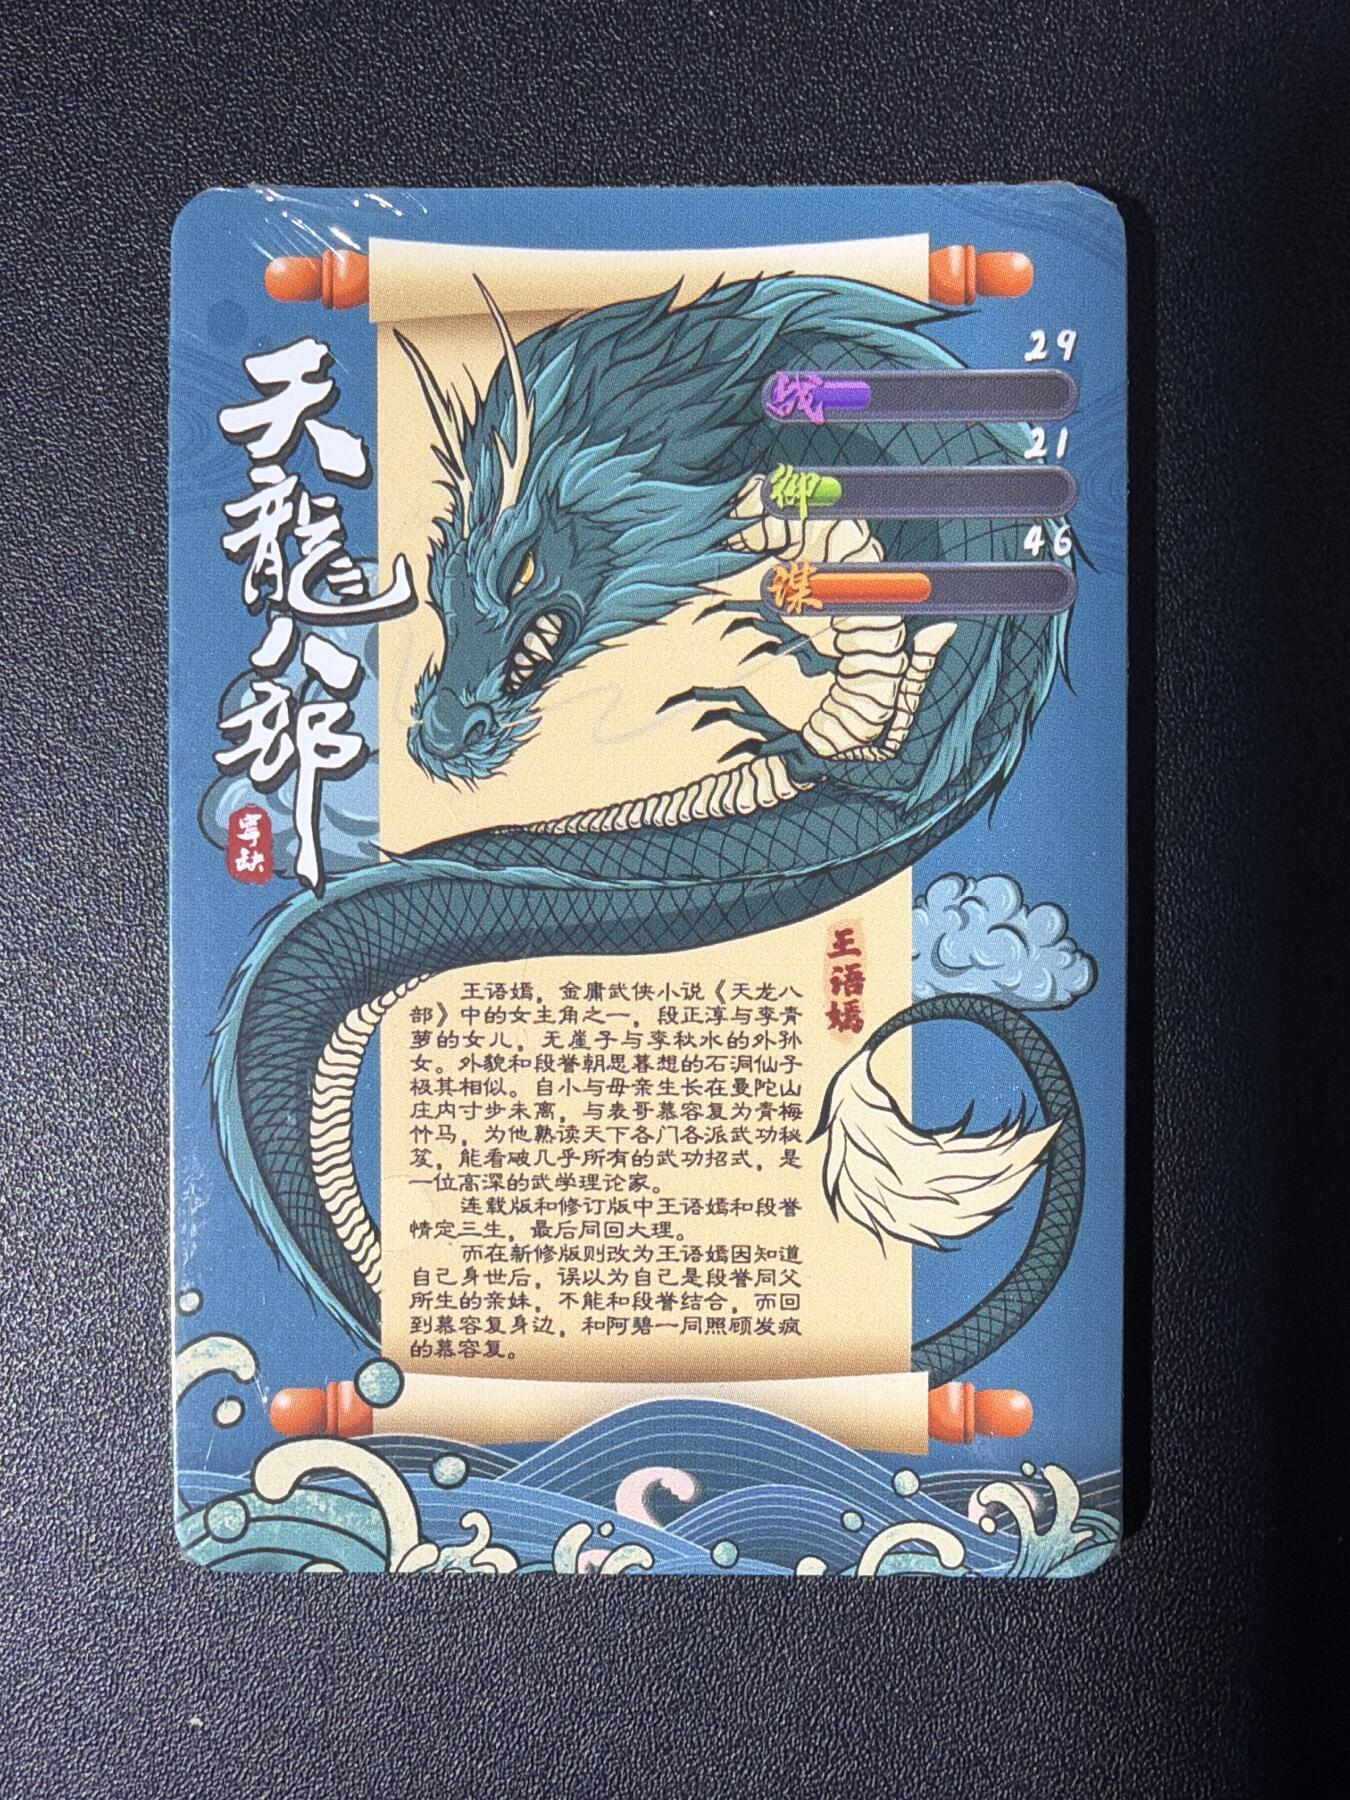 天龍八部
寧缺
29
战
21
御
46
谋
王语嫣
王语嫣，金庸武侠小说《天龙八
部》中的女主角之一，段正淳与李青
萝的女儿，无崖子与李秋水的外孙
女。外貌和段誉朝思暮想的石洞仙子
极其相似。自小与母亲生长在曼陀山
庄内寸步未离，与表哥慕容复为青梅
竹马，为他熟读天下各门各派武功秘
笈，能看破几乎所有的武功招式，是
一位高深的武学理论家。
连载版和修订版中王语嫣和段誉
情定三生，最后同回大理。
而在新修版则改为王语嫣因知道
自己身世后，误以为自己是段誉同父
所生的亲妹，不能和段誉结合，而回
到慕容复身边，和阿碧一同照顾发疯
的慕容复。